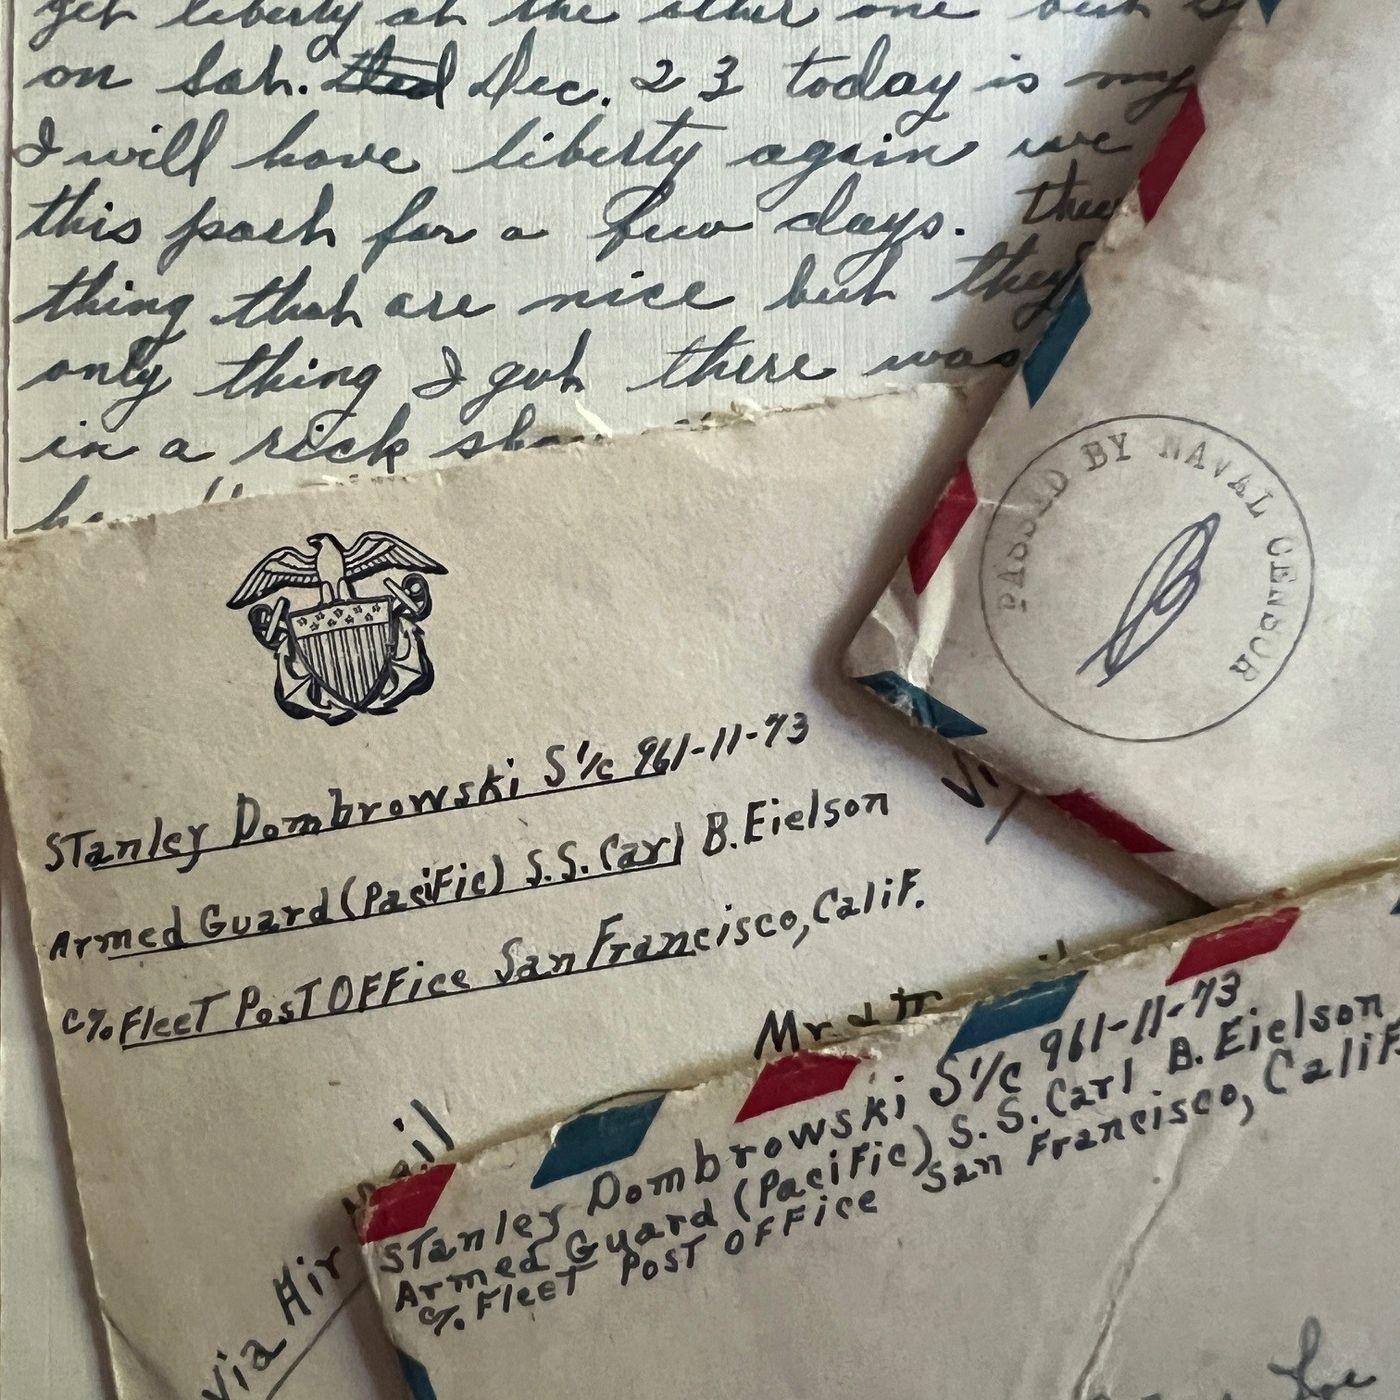 get liberty at the other one but
on Sat. Dec. 23 today is my
I will have liberty again we
this port for a few days. they
thing that are nice but they
only thing I got there was
in a rick
PASSED BY NAVAL CENSOR
Stanley Dombrowski S1/c 961-11-73
Armed Guard (Pacific) S.S. Carl B. Eielson
c/o Fleet Post Office San Francisco, Calif.
Mr &
via Air Mail
Stanley Dombrowski S1/c 961-11-73
Armed Guard (Pacific) S.S. Carl B. Eielson
c/o Fleet Post Office San Francisco, Calif